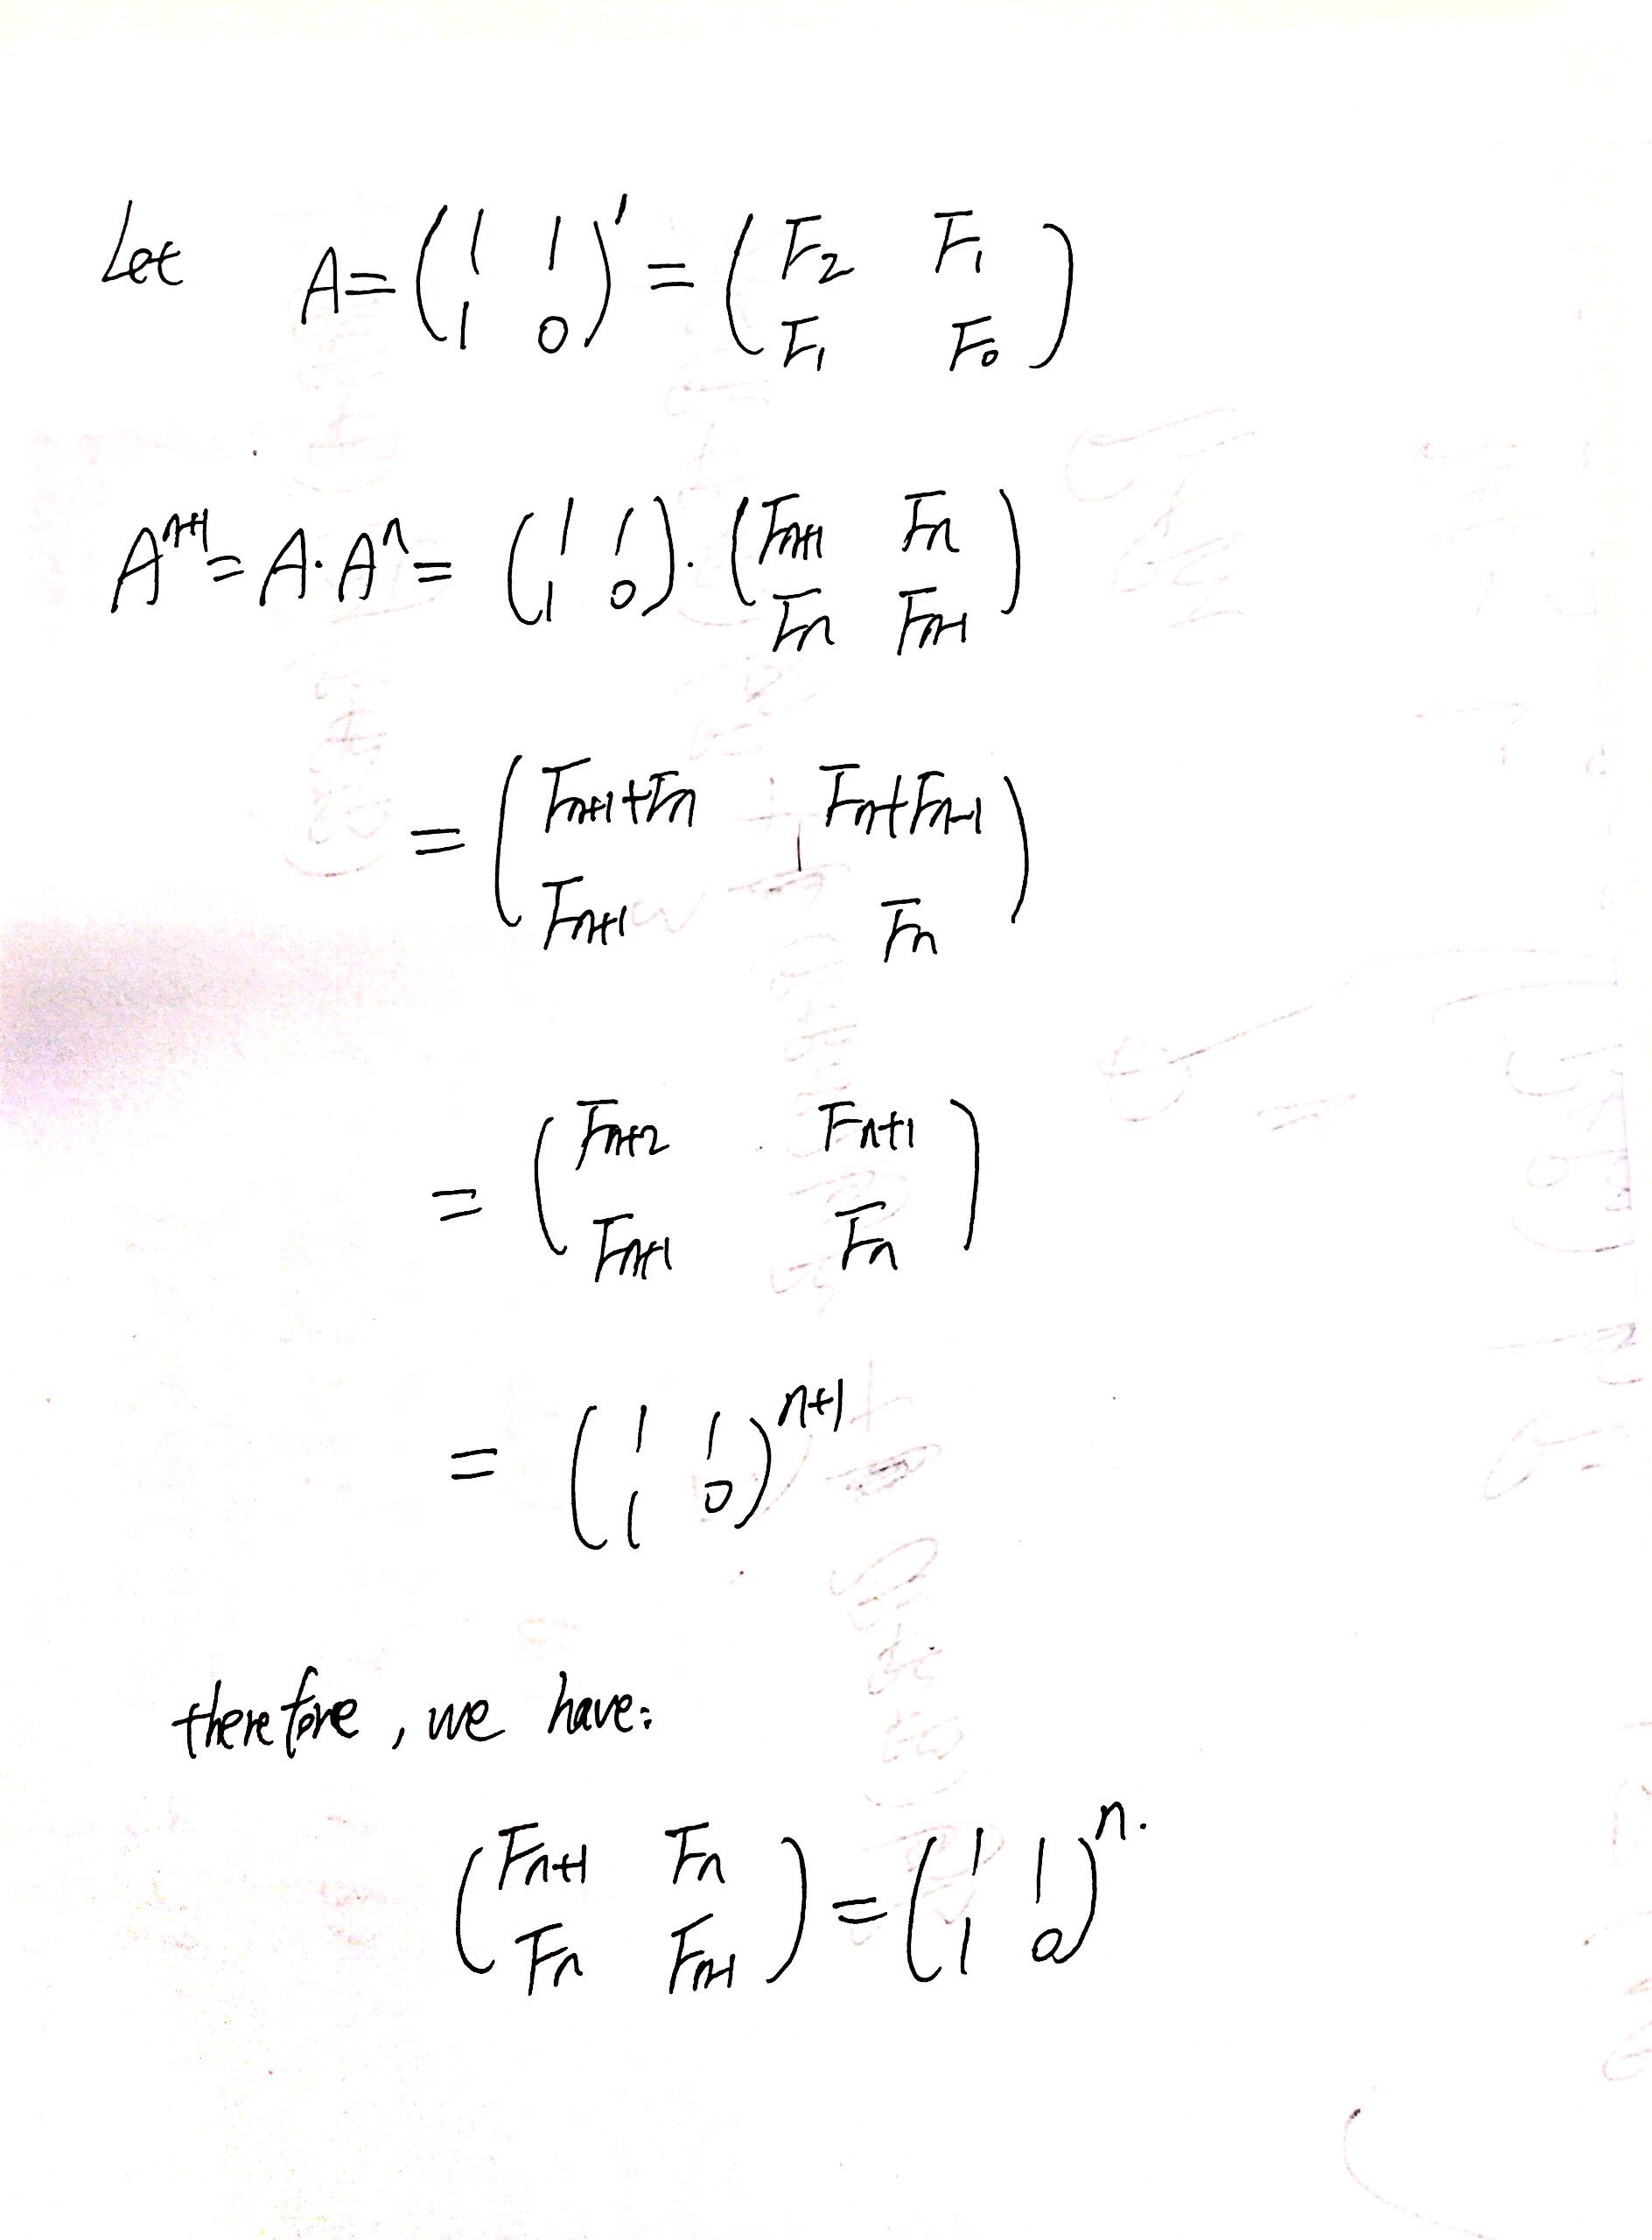 Let A = ( 1 1 ; 1 0 )^1 = ( F_2 F_1 ; F_1 F_0 )
A^{n+1} = A · A^n = ( 1 1 ; 1 0 ) · ( F_{n+1} F_n ; F_n F_{n-1} )
= ( F_{n+1}+F_n F_n+F_{n-1} ; F_{n+1} F_n )
= ( F_{n+2} F_{n+1} ; F_{n+1} F_n )
= ( 1 1 ; 1 0 )^{n+1}
therefore, we have:
( F_{n+1} F_n ; F_n F_{n-1} ) = ( 1 1 ; 1 0 )^n.